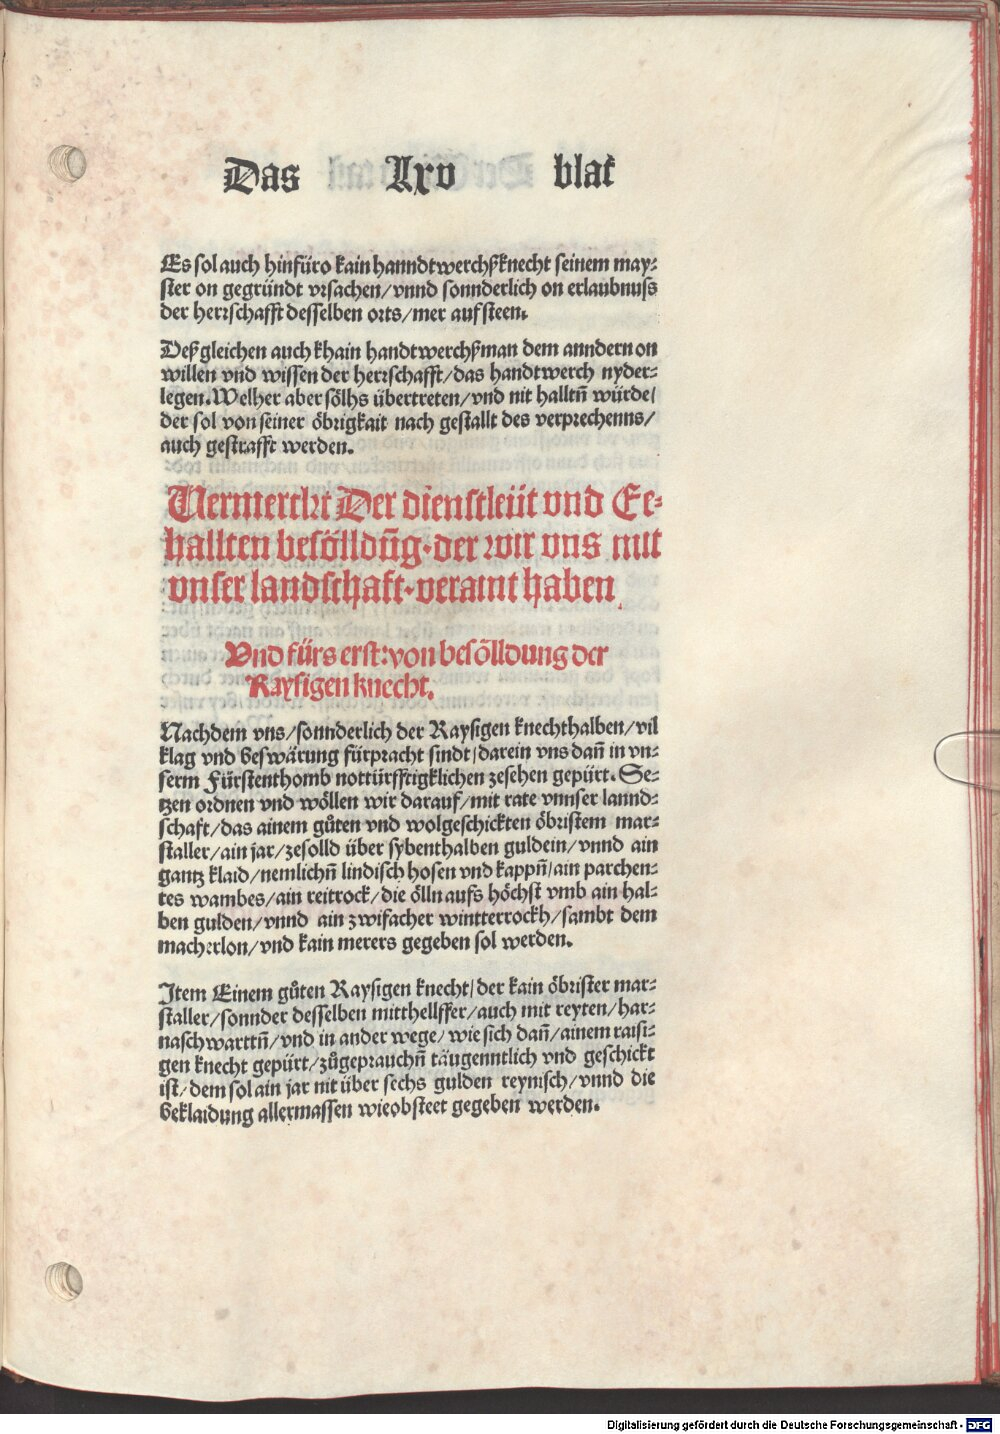 Das lxv blat
Es sol auch hinfüro kain hanndtwerchßknecht seinem may-
ster on gegründt vrsachen/vnnd sonnderlich on erlaubnuss
der herrschafft desselben orts/mer aufsteen.
Deßgleichen auch khain handtwerchßman dem anndern on
willen vnd wissen der herrschafft/das handtwerch nyder-
legen. Welher aber sölhs übertreten/vnd nit halltñ würde/
der sol von seiner öbrigkait nach gestallt des verprechenns/
auch gestrafft werden.
Vermerckt Der dienstleüt vnd Ee-
hallten besölldũg. der wir vns mit
vnser landschaft. veraint haben
Vnd fürs erst: von besölldung der
Raysigen knecht.
Nachdem vns/sonnderlich der Raysigen knechthalben/vil
klag vnd beswärung fürpracht sindt/darein vns dañ in vn-
serm Fürstenthomb nottürfftigklichen zesehen gepürt. Se-
tzen ordnen vnd wöllen wir darauf/mit rate vnnser lannd-
schaft/das ainem gůten vnd wolgeschickten öbristem mar-
staller/ain jar/zesolld über sybenthalben guldein/vnnd ain
gantz klaid/nemlichñ lindisch hosen vnd kappñ/ain parchen-
tes wambes/ain reitrock/die ölln aufs höchst vmb ain hal-
ben gulden/vnnd ain zwifacher wintterrockh/sambt dem
macherlon/vnd kain merers gegeben sol werden.
Item Einem gůten Raysigen knecht/der kain öbrister mar-
staller/sonnder desselben mitthellffer/auch mit reyten/har-
naschwarttñ/vnd in ander wege/wie sich dañ/ainem raisi-
gen knecht gepürt/zůgeprauchñ täugenntlich vnd geschickt
ist/dem sol ain jar nit über sechs gulden reynisch/vnnd die
beklaidung allermassen wieobsteet gegeben werden.
Digitalisierung gefördert durch die Deutsche Forschungsgemeinschaft - DFG